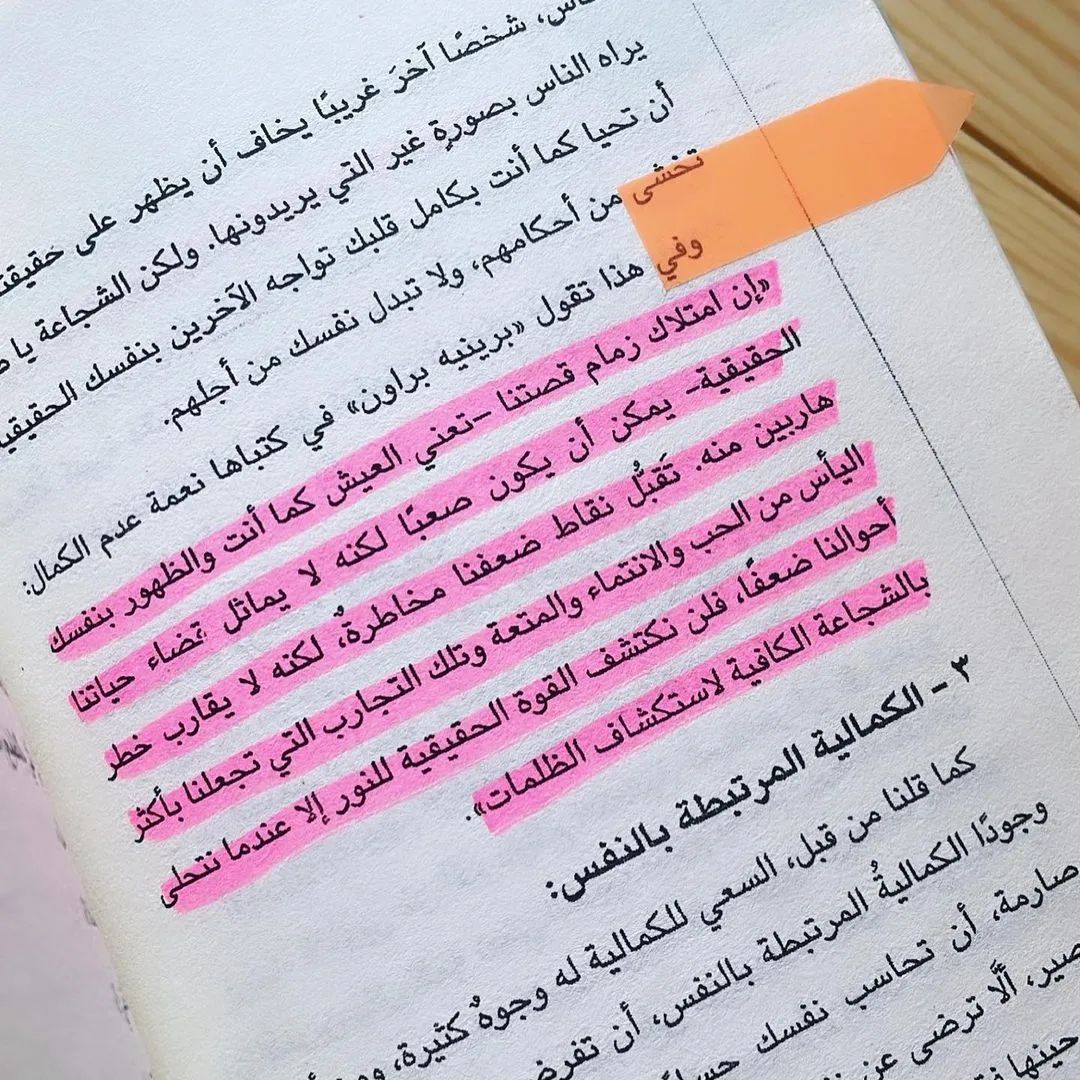 شخصًا آخرَ غريبًا يخاف أن يظهر على
يراه الناس بصورةٍ غير التي يريدونها. ولكن الشجاعة
أن تحيا كما أنت بكامل قلبك تواجه الآخرين بنفسك
تخشى من أحكامهم، ولا تبدل نفسك من أجلهم.
وفي هذا تقول «برينيه براون» في كتباها نعمة عدم الكمال:
«إن امتلاك زمام قصتنا –تعني العيش كما أنت والظهور بنفسك
الحقيقية– يمكن أن يكون صعبًا لكنه لا يماثل قضاء حياتنا
هاربين منه. تَقبُّل نقاط ضعفنا مخاطرةٌ، لكنه لا يقارب خطر
اليأس من الحب والانتماء والمتعة وتلك التجارب التي تجعلنا بأكثر
أحوالنا ضعفًا، فلن نكتشف القوة الحقيقية للنور إلا عندما نتحلى
بالشجاعة الكافية لاستكشاف الظلمات».
٣ - الكمالية المرتبطة بالنفس:
كما قلنا من قبل، السعي للكمالية له وجوهٌ كثيرة،
وجودًا الكماليةُ المرتبطة بالنفس، أن تفرض
صارمة، أن تحاسب نفسك
ألَّا ترضى عن
حينها